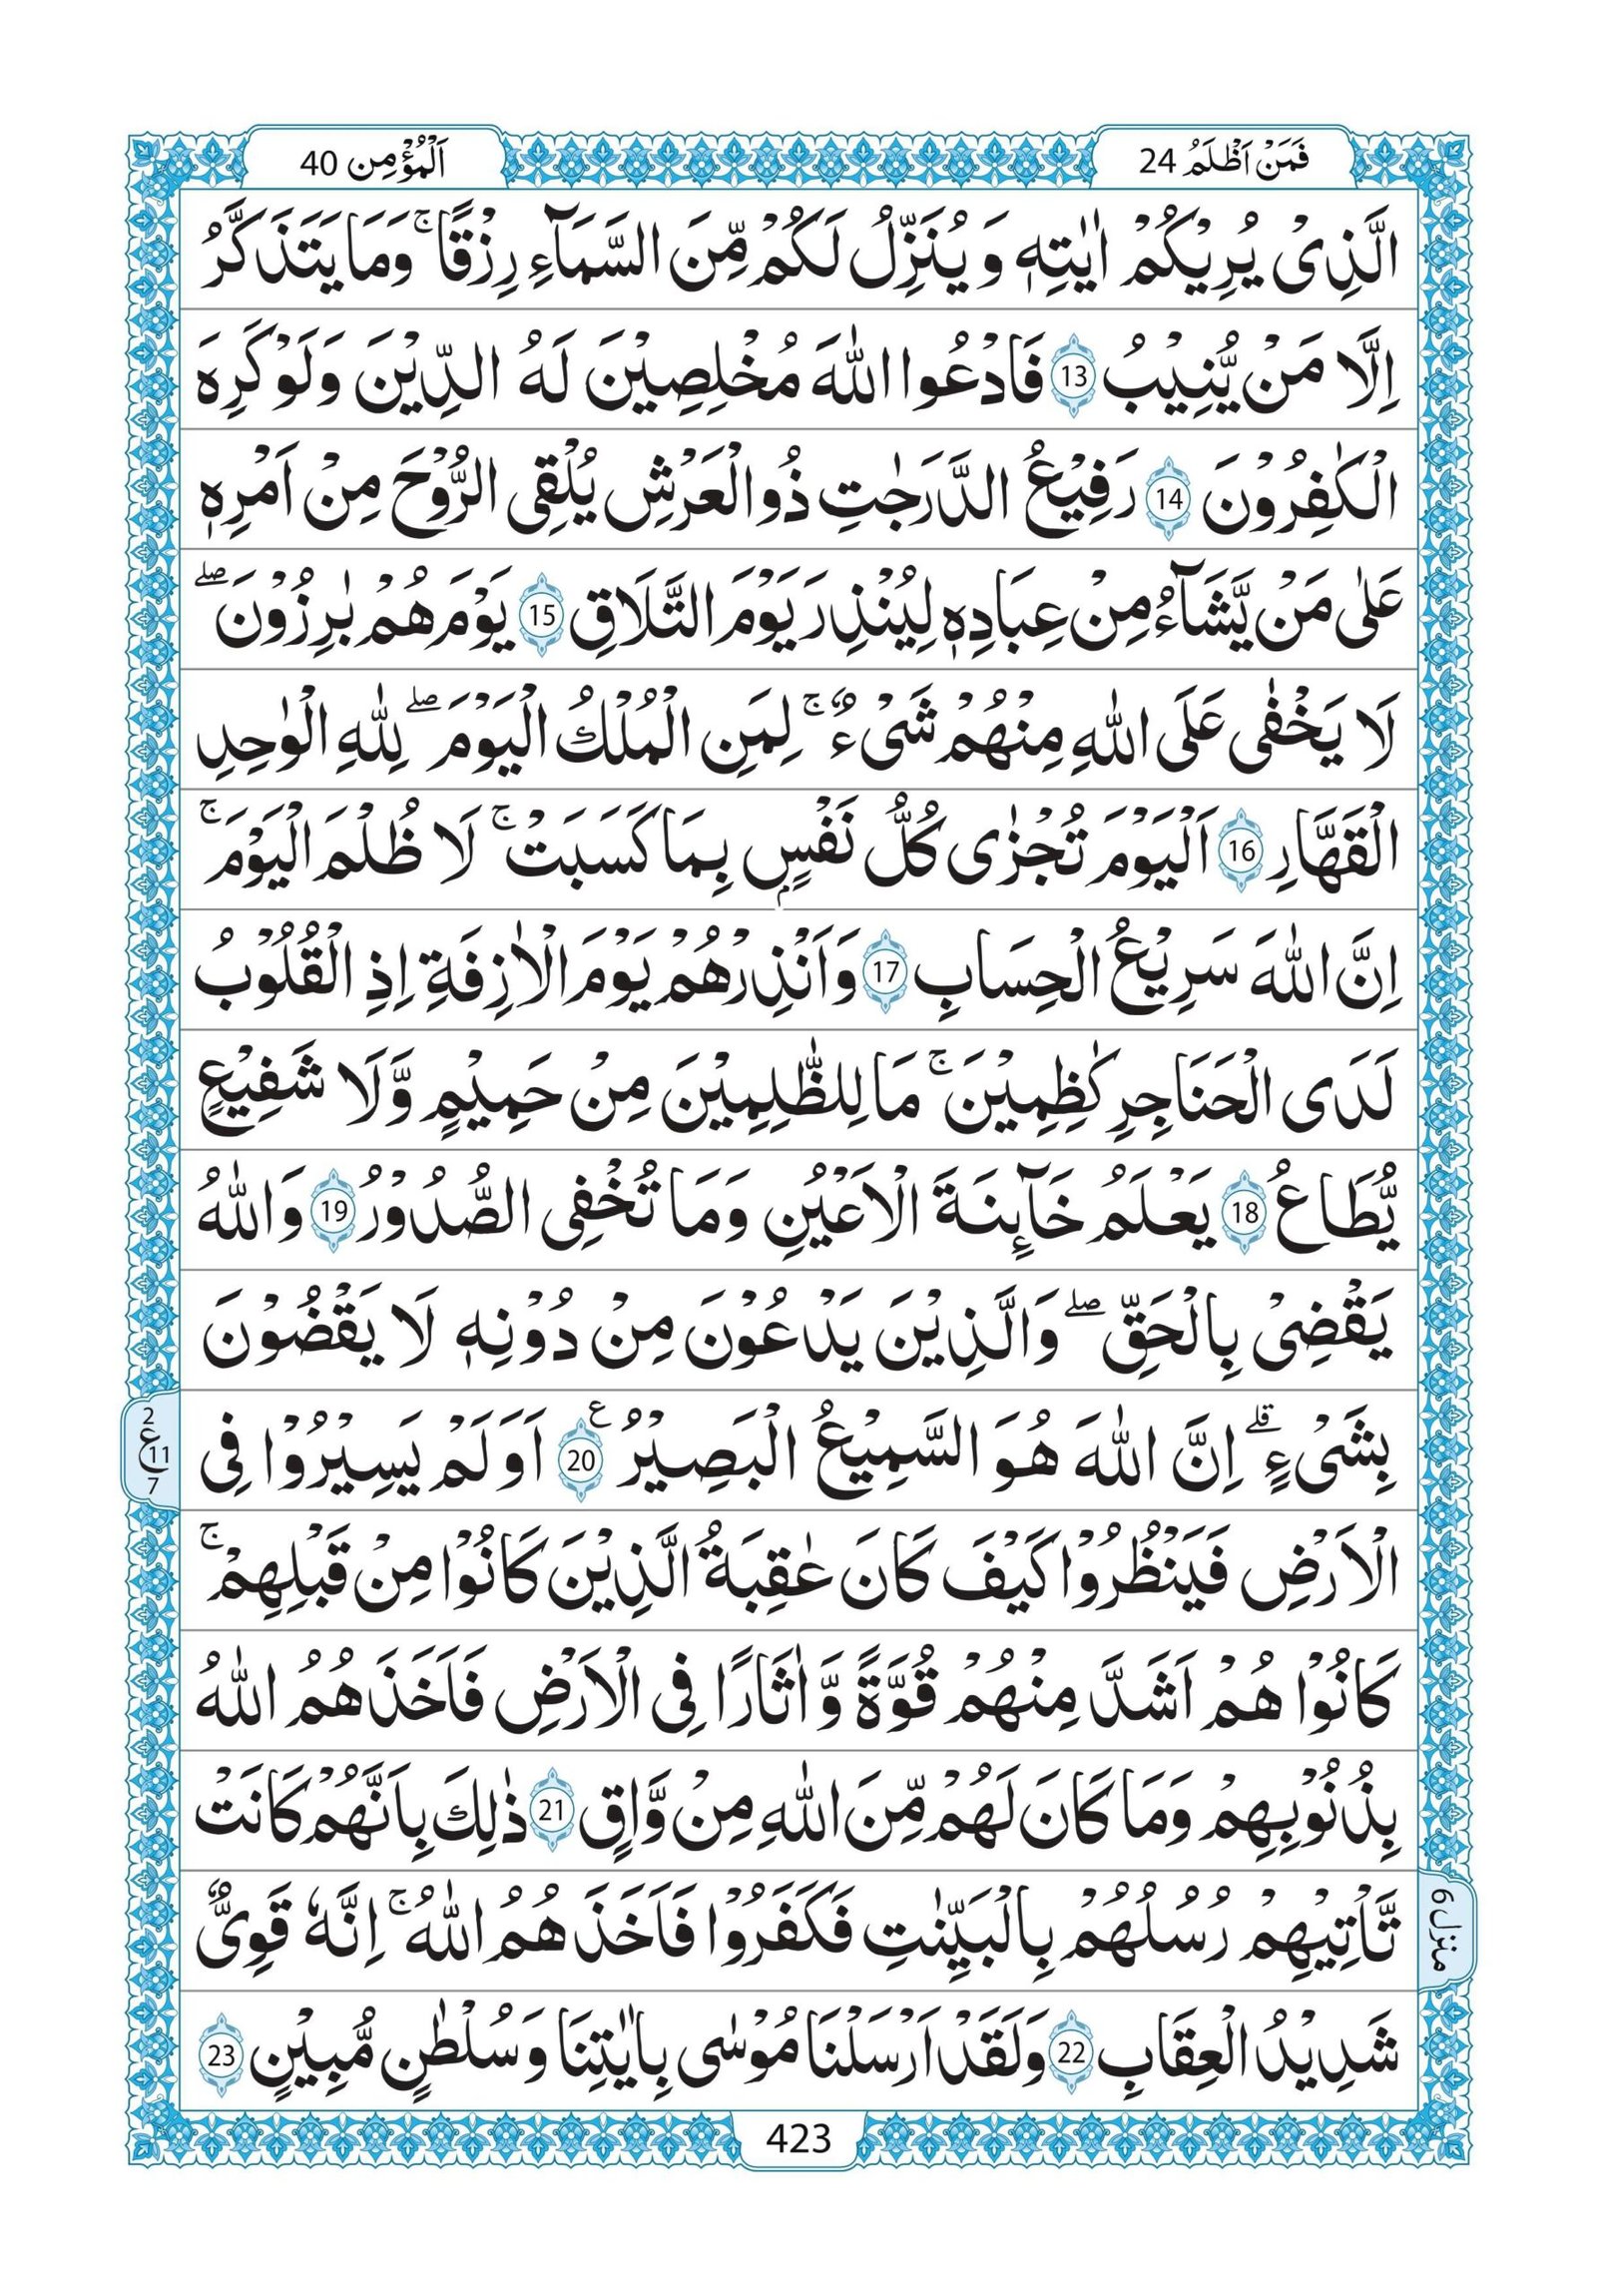 فَمَنْ اَظْلَمُ 24
اَلْمُؤْمِن 40
الَّذِیْ یُرِیْكُمْ اٰیٰتِهٖ وَ یُنَزِّلُ لَكُمْ مِّنَ السَّمَآءِ رِزْقًا ۚ وَمَا یَتَذَكَّرُ
اِلَّا مَنْ یُّنِیْبُ 13 فَادْعُوا اللّٰهَ مُخْلِصِیْنَ لَهُ الدِّیْنَ وَلَوْ كَرِهَ
الْكٰفِرُوْنَ 14 رَفِیْعُ الدَّرَجٰتِ ذُو الْعَرْشِ یُلْقِی الرُّوْحَ مِنْ اَمْرِهٖ
عَلٰی مَنْ یَّشَآءُ مِنْ عِبَادِهٖ لِیُنْذِرَ یَوْمَ التَّلَاقِ 15 یَوْمَ هُمْ بٰرِزُوْنَ ۖ
لَا یَخْفٰی عَلَی اللّٰهِ مِنْهُمْ شَیْءٌ ۚ لِمَنِ الْمُلْكُ الْیَوْمَ ۖ لِلّٰهِ الْوٰحِدِ
الْقَهَّارِ 16 اَلْیَوْمَ تُجْزٰی كُلُّ نَفْسٍۭ بِمَا كَسَبَتْ ۚ لَا ظُلْمَ الْیَوْمَ ۚ
اِنَّ اللّٰهَ سَرِیْعُ الْحِسَابِ 17 وَاَنْذِرْهُمْ یَوْمَ الْاٰزِفَةِ اِذِ الْقُلُوْبُ
لَدَی الْحَنَاجِرِ كٰظِمِیْنَ ۚ مَا لِلظّٰلِمِیْنَ مِنْ حَمِیْمٍ وَّلَا شَفِیْعٍ
یُّطَاعُ 18 یَعْلَمُ خَآىِٕنَةَ الْاَعْیُنِ وَمَا تُخْفِی الصُّدُوْرُ 19 وَاللّٰهُ
یَقْضِیْ بِالْحَقِّ ۖ وَالَّذِیْنَ یَدْعُوْنَ مِنْ دُوْنِهٖ لَا یَقْضُوْنَ
بِشَیْءٍ ۗ اِنَّ اللّٰهَ هُوَ السَّمِیْعُ الْبَصِیْرُ ع 20 اَوَلَمْ یَسِیْرُوْا فِی
2
ع 11
7
الْاَرْضِ فَیَنْظُرُوْا كَیْفَ كَانَ عٰقِبَةُ الَّذِیْنَ كَانُوْا مِنْ قَبْلِهِمْ ۚ
كَانُوْا هُمْ اَشَدَّ مِنْهُمْ قُوَّةً وَّ اٰثَارًا فِی الْاَرْضِ فَاَخَذَهُمُ اللّٰهُ
بِذُنُوْبِهِمْ وَمَا كَانَ لَهُمْ مِّنَ اللّٰهِ مِنْ وَّاقٍ 21 ذٰلِكَ بِاَنَّهُمْ كَانَتْ
تَّاْتِیْهِمْ رُسُلُهُمْ بِالْبَیِّنٰتِ فَكَفَرُوْا فَاَخَذَهُمُ اللّٰهُ ۚ اِنَّهٗ قَوِیٌّ
منزل 6
شَدِیْدُ الْعِقَابِ 22 وَلَقَدْ اَرْسَلْنَا مُوْسٰی بِاٰیٰتِنَا وَسُلْطٰنٍ مُّبِیْنٍ 23
423